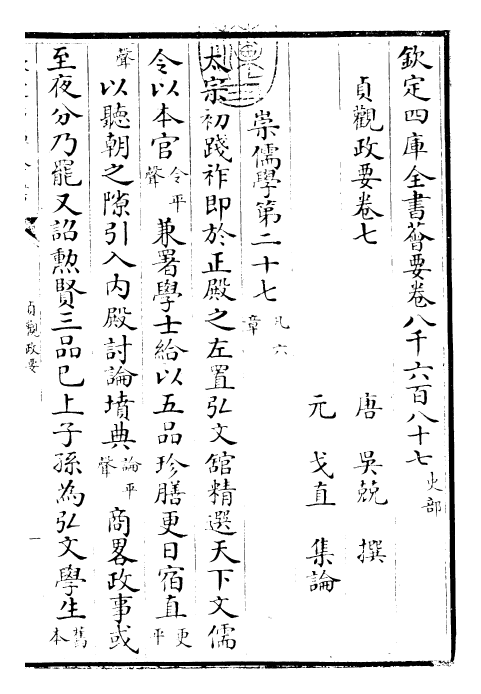 欽定四庫全書薈要卷八千六百八十七 史部
貞觀政要卷七
唐 吳兢 撰
元 戈直 集論
崇儒學第二十七 凡六章
太宗初踐祚即於正殿之左置弘文館精選天下文儒
令以本官 令平聲 兼署學士給以五品珍膳更日宿直 更平
聲 以聽朝之隙引入內殿討論墳典 論平聲 商畧政事或
至夜分乃罷又詔勲賢三品已上子孫為弘文學生 舊本
貞觀政要
一